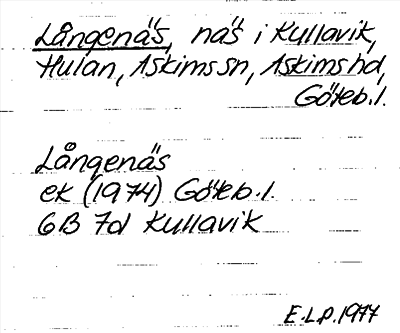 Långenäs, näs i Kullavik,
Hulan, Askims sn, Askims hd,
Göteb. l.
Långenäs
ek (1974) Göteb. l.
6B 7d Kullavik
E.L.P. 1977